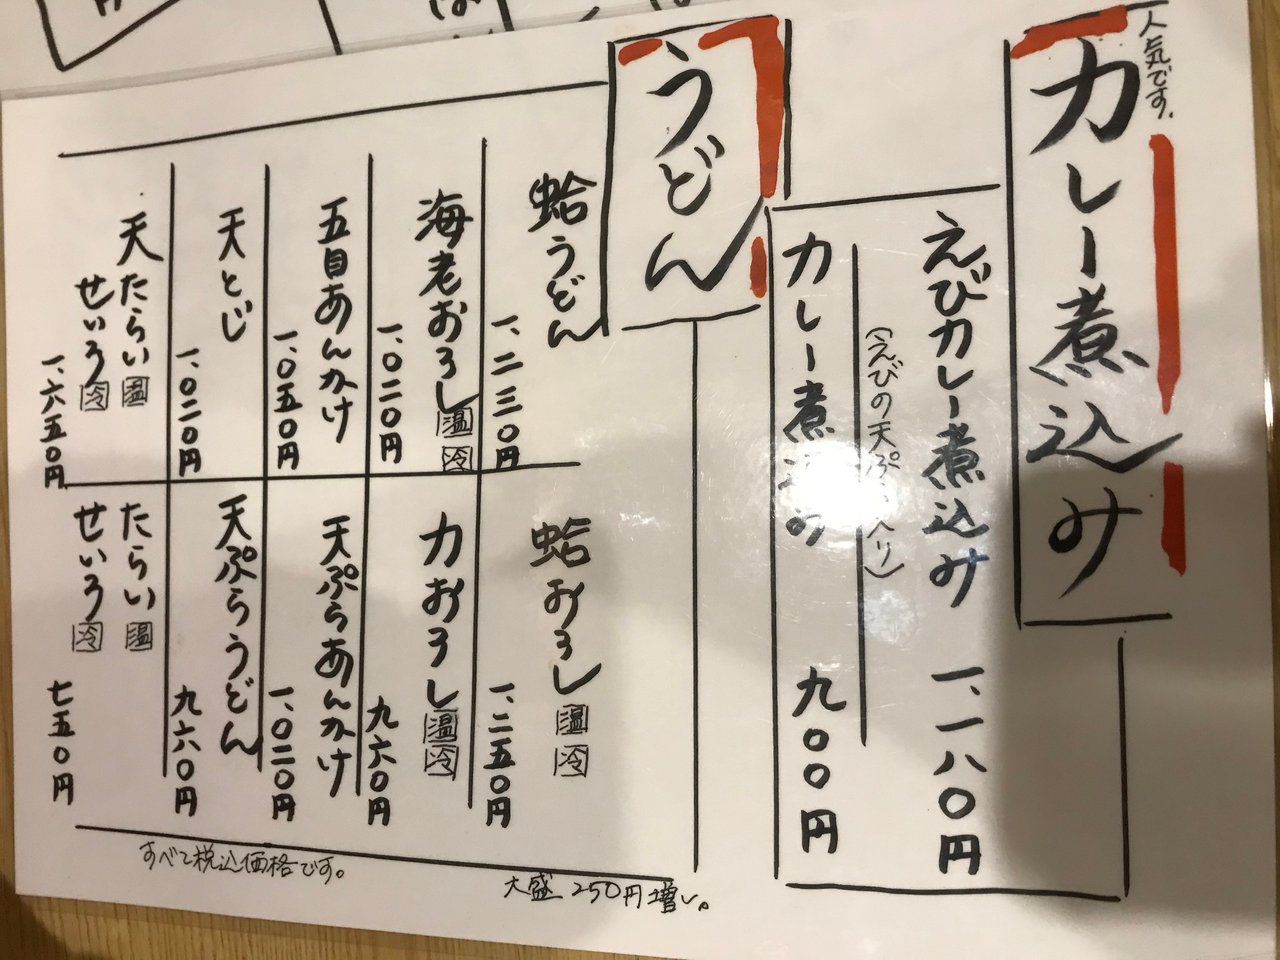 人気です。
カレー煮込み
えびカレー煮込み 一、一八〇円
(えびの天ぷら入り)
カレー煮込み 九〇〇円
うどん
蛤うどん 一、二三〇円
海老おろし 温 冷 一、〇二〇円
五目あんかけ 一、〇五〇円
天とじ 一、〇二〇円
天たらい 温
せいろ 冷
一、六五〇円
蛤おろし 温 冷 一、二五〇円
力おろし 温 冷 九六〇円
天ぷらあんかけ 一、〇二〇円
天ぷらうどん 九六〇円
たらい 温
せいろ 冷
七五〇円
すべて税込価格です。
大盛 250円増し。